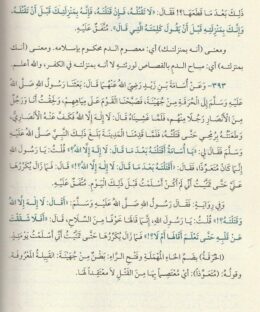 ذَلِكَ بَعْدَ مَا قَطَعَهَا؟! فَقَالَ: «لَا تَقْتُلْهُ، فَإِنْ قَتَلْتَهُ، فَإِنَّهُ بِمَنْزِلَتِكَ قَبْلَ أَنْ تَقْتُلَهُ،
وَإِنَّكَ بِمَنْزِلَتِهِ قَبْلَ أَنْ يَقُولَ كَلِمَتَهُ الَّتِي قَالَ». مُتَّفَقٌ عَلَيْهِ.
ومعنى (أنه بمنزلتك) أي: معصوم الدم محكوم بإسلامه. ومعنى (أنك
بمنزلته) أي: مباح الدم بالقصاص لورثته لا أنه بمنزلته في الكفر، والله أعلم.
٣٩٣- وَعَنْ أُسَامَةَ بْنِ زَيْدٍ رَضِيَ اللهُ عَنْهُمَا قَالَ: بَعَثَنَا رَسُولُ اللهِ صَلَّى اللهُ
عَلَيْهِ وَسَلَّمَ إِلَى الْحُرَقَةِ مِنْ جُهَيْنَةَ، فَصَبَّحْنَا الْقَوْمَ عَلَى مِيَاهِهِمْ، وَلَحِقْتُ أَنَا وَرَجُلٌ
مِنَ الْأَنْصَارِ رَجُلًا مِنْهُمْ، فَلَمَّا غَشِينَاهُ قَالَ: لَا إِلَهَ إِلَّا اللهُ، فَكَفَّ عَنْهُ الْأَنْصَارِيُّ،
وَطَعَنْتُهُ بِرُمْحِي حَتَّى قَتَلْتُهُ، فَلَمَّا قَدِمْنَا الْمَدِينَةَ بَلَغَ ذَلِكَ النَّبِيَّ صَلَّى اللهُ عَلَيْهِ
وَسَلَّمَ فَقَالَ لِي: «يَا أُسَامَةُ أَقَتَلْتَهُ بَعْدَ مَا قَالَ: لَا إِلَهَ إِلَّا اللهُ؟!» قُلْتُ: يَا رَسُولَ اللهِ،
إِنَّمَا كَانَ مُتَعَوِّذًا، فَقَالَ: «أَقَتَلْتَهُ بَعْدَ مَا قَالَ: لَا إِلَهَ إِلَّا اللهُ؟!» فَمَا زَالَ يُكَرِّرُهَا
عَلَيَّ حَتَّى تَمَنَّيْتُ أَنِّي لَمْ أَكُنْ أَسْلَمْتُ قَبْلَ ذَلِكَ الْيَوْمِ. مُتَّفَقٌ عَلَيْهِ.
وَفِي رِوَايَةٍ: فَقَالَ رَسُولُ اللهِ صَلَّى اللهُ عَلَيْهِ وَسَلَّمَ: «أَقَالَ: لَا إِلَهَ إِلَّا اللهُ
وَقَتَلْتَهُ؟!» قُلْتُ: يَا رَسُولَ اللهِ، إِنَّمَا قَالَهَا خَوْفًا مِنَ السِّلَاحِ، قَالَ: «أَفَلَا شَقَقْتَ
عَنْ قَلْبِهِ حَتَّى تَعْلَمَ أَقَالَهَا أَمْ لَا؟!» فَمَا زَالَ يُكَرِّرُهَا حَتَّى تَمَنَّيْتُ أَنِّي أَسْلَمْتُ يَوْمَئِذٍ.
(الْحُرَقَةُ) بِضَمِّ الْحَاءِ الْمُهْمَلَةِ وَفَتْحِ الرَّاءِ: بَطْنٌ مِنْ جُهَيْنَةَ: الْقَبِيلَةِ الْمَعْرُوفَةِ.
وقوله: (مُتَعَوِّذًا): أَيْ: مُعْتَصِمًا بِهَا مِنَ الْقَتْلِ لَا مُعْتَقِدًا لَهَا.